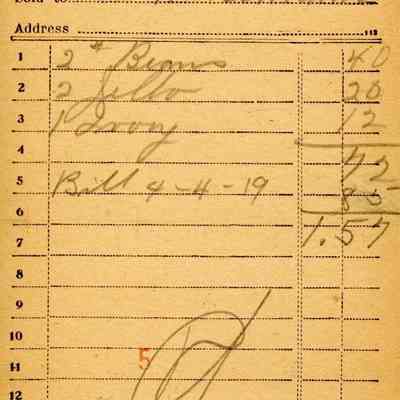 Sold to
Address
1 2 # Beans 40
2 2 Jello 20
3 1 Ivory 12
4 72
5 Bill 4-4-19 85
6
7 1.57
8
9
10
11 5
12